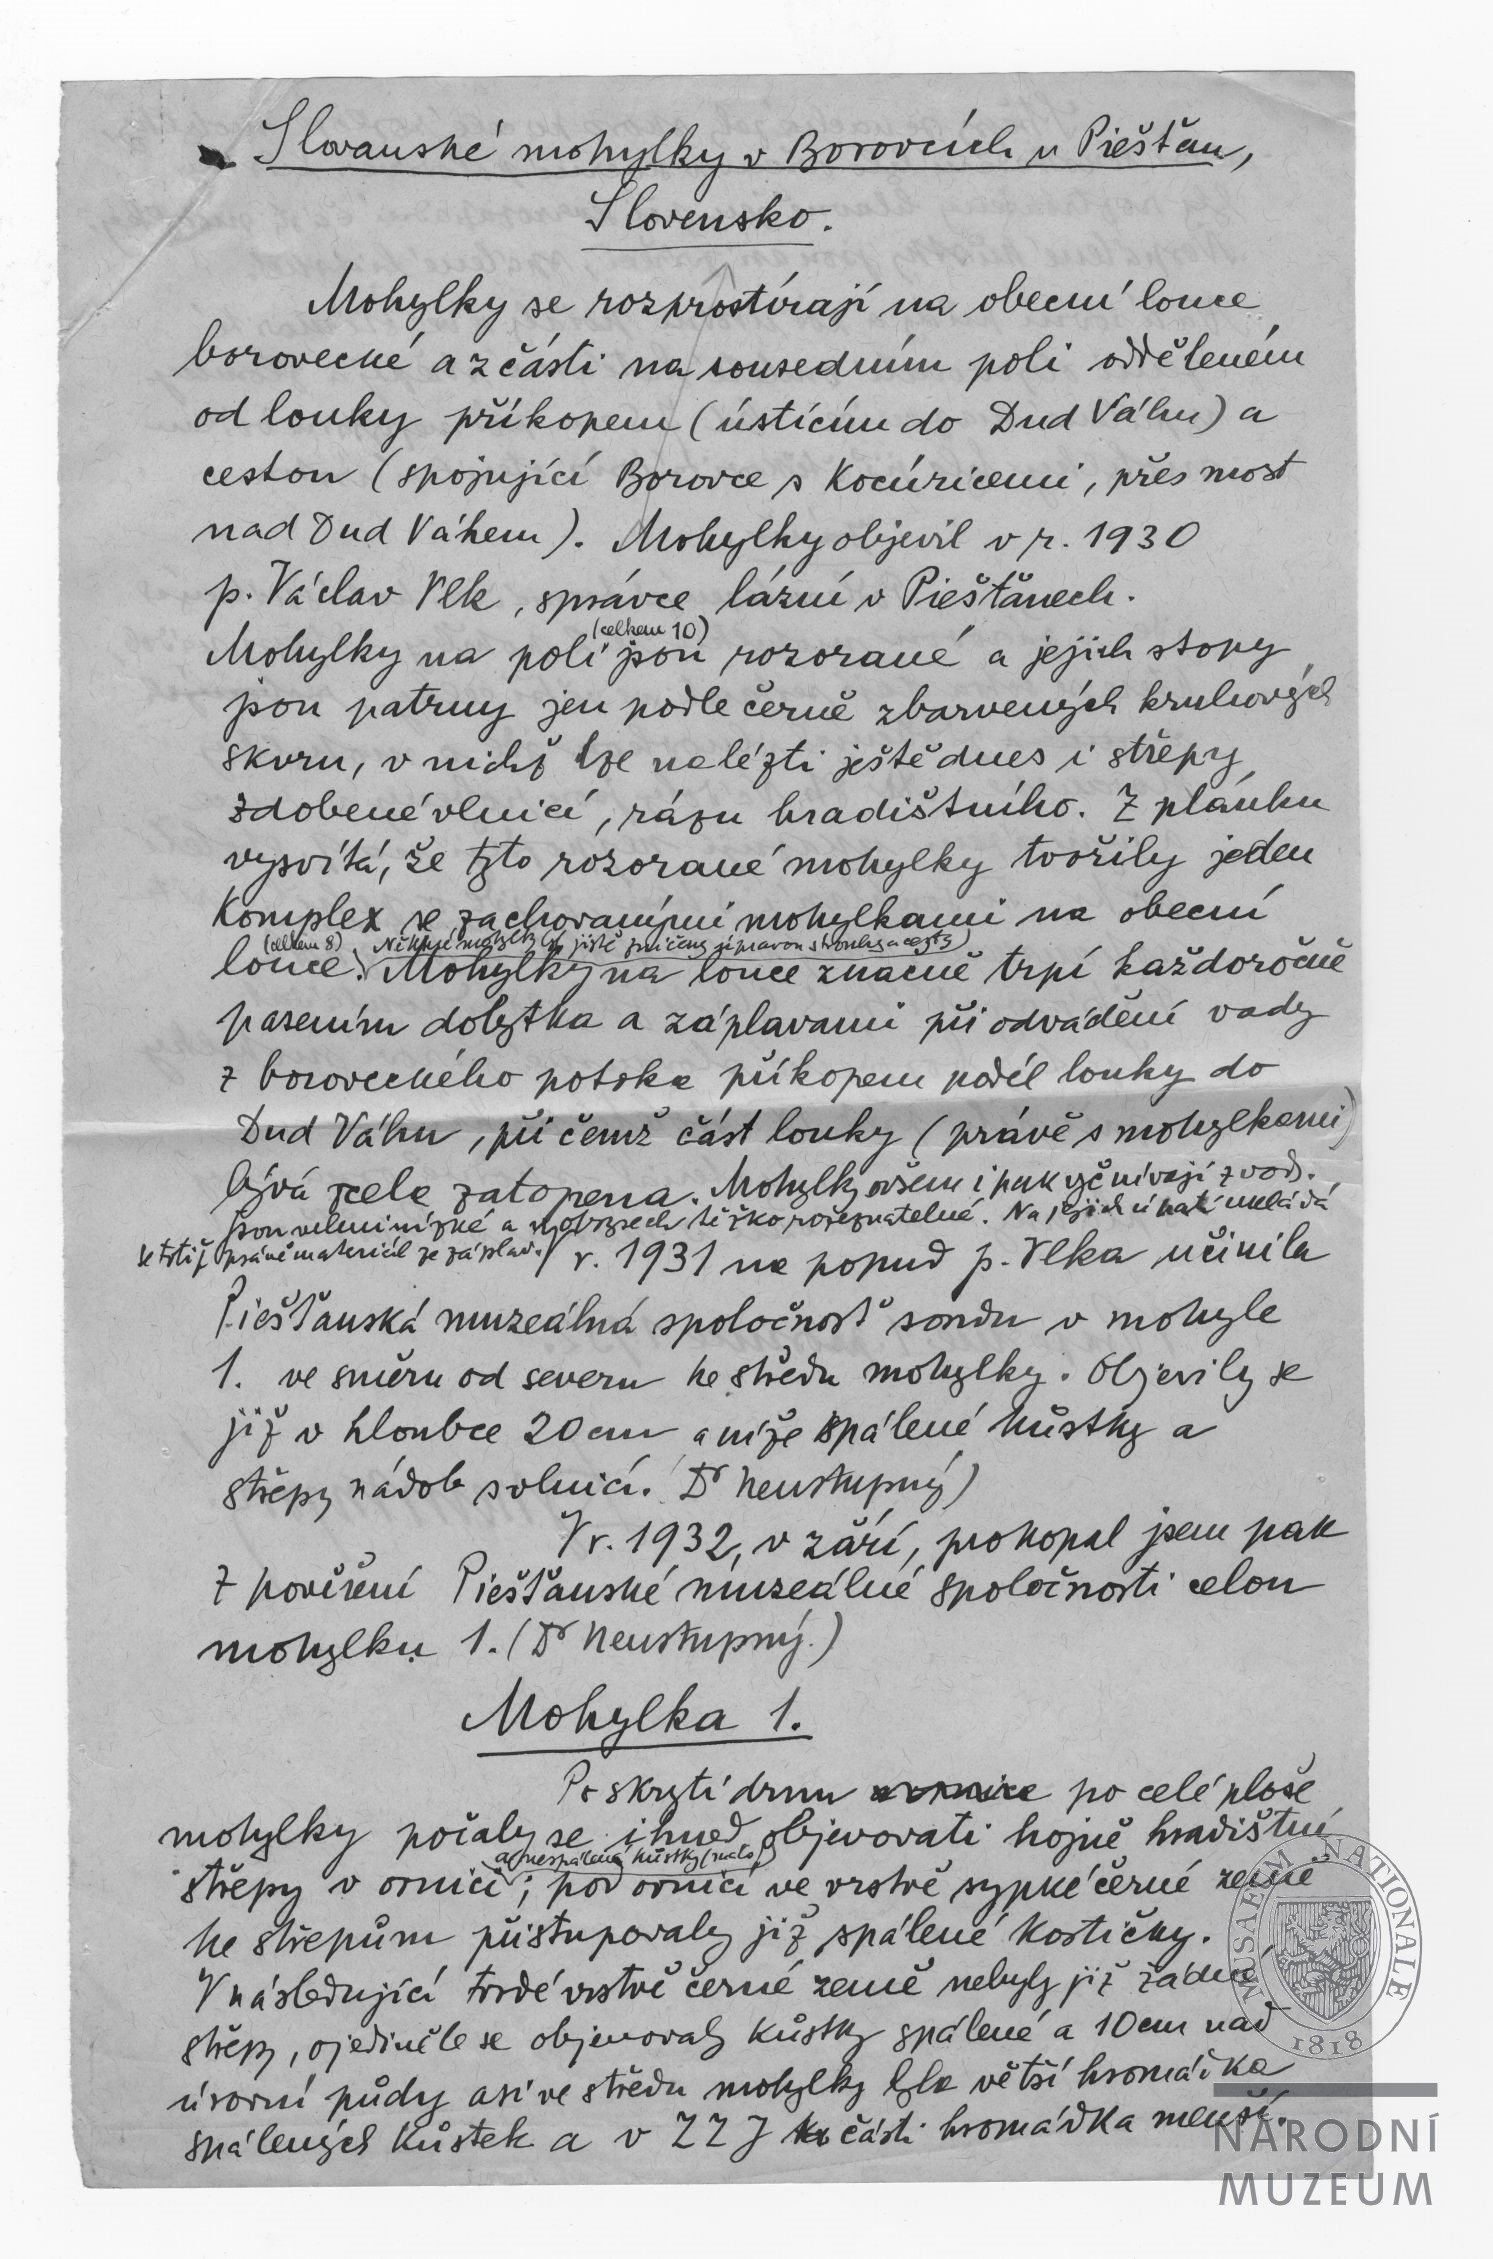 Slovanské mohylky v Borovcích u Piešťan,
Slovensko.
Mohylky se rozprostírají na obecní louce
borovecké a z části na sousedním poli odděleném
od louky příkopem (ústícím do Dud Váhu) a
cestou (spojující Borovce s Kocúricemi, přes most
nad Dud Váhem). Mohylky objevil v r. 1930
p. Václav Vlk, správce lázní v Piešťanech.
(celkem 10)
Mohylky na poli jsou rozorané a jejich stopy
jsou patrny jen podle černě zbarvených kruhových
skvrn, v nichž lze nalézti ještě dnes i střepy
zdobené vlnicí, rázu hradištního. Z plánku
vysvítá, že tyto rozorané mohylky tvořily jeden
komplex se zachovanými mohylkami na obecní
(celkem 8) Některé mohylky jistě zničeny úpravou strouhy a cesty)
louce. Mohylky na louce značně trpí každoročně
pasením dobytka a záplavami při odvádění vody
z boroveckého potoka příkopem podél louky do
Dud Váhu, při čemž část louky (právě s mohylkami)
bývá zcela zatopena. Mohylky ovšem i pak vyčnívají z vody.
jsou velmi nízké a v obrysech těžko rozeznatelné. Na jejich úpatí ukládá
se totiž právě materiál ze záplav. V r. 1931 na popud p. Vlka učinila
Piešťanská muzeálná spoločnosť sondu v mohyle
1. ve směru od severu ke středu mohylky. Objevily se
již v hloubce 20 cm a níže spálené kůstky a
střepy nádob s vlnicí. (Dr Neustupný)
V r. 1932, v září, prokopal jsem pak
z pověření Piešťanské muzeálné spoločnosti celou
mohylku 1. (Dr Neustupný.)
Mohylka 1.
Po skrytí drnu po celé ploše
mohylky počaly se ihned objevovati hojně hradištní
a nespálené kůstky (málo)
střepy v ornici; pod ornicí ve vrstvě sypké černé země
ke střepům přistupovaly již spálené kostičky.
V následující tvrdé vrstvě černé země nebyly již žádné
střepy, ojediněle se objevovaly kůstky spálené a 10 cm nad
úrovní půdy asi ve středu mohylky byla větší hromádka
spálených kůstek a v ZZJ části hromádka menší.
MUSAEUM NATIONALE
1818
NÁRODNÍ
MUZEUM